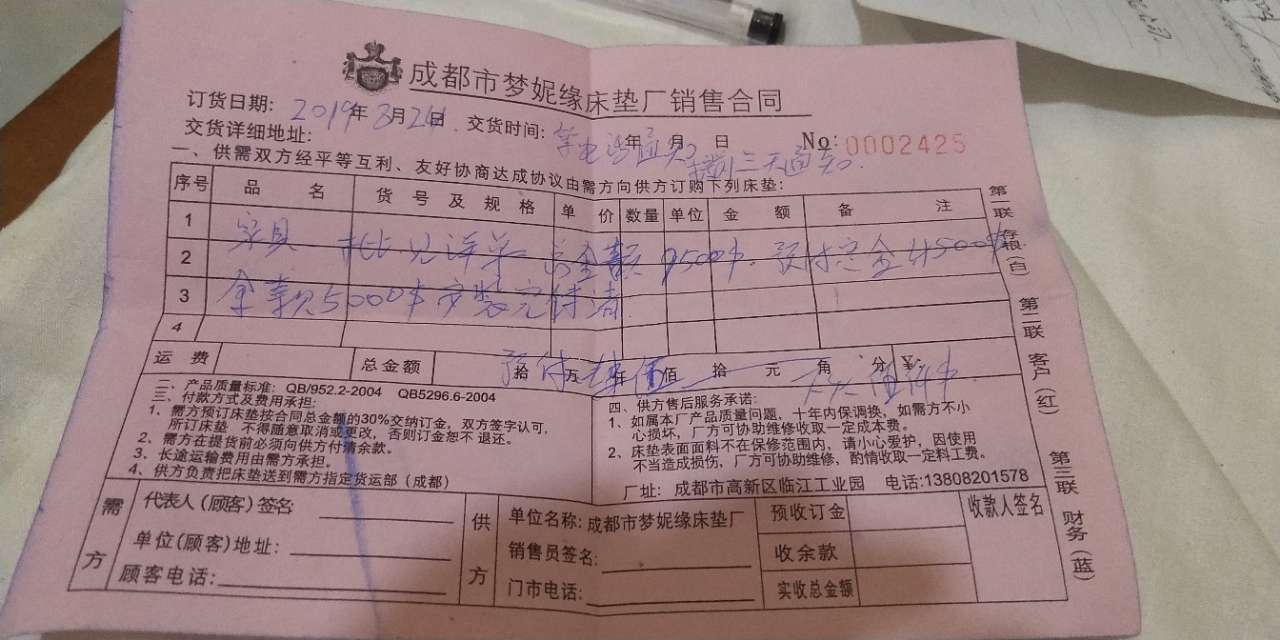 成都市梦妮缘床垫厂销售合同
订货日期: 2019年3月24日 交货时间: 等电话通知 年 月 日 No: 0002425
交货详细地址: 提前三天通知
一、供需双方经平等互利、友好协商达成协议由需方向供方订购下列床垫:
序号 品名 货号及规格 单价 数量 单位 金额 备注
1
家具 见详单 总金额9500 预付定金4500
2
余款5000 安装完付清
3
4
运费 总金额 预付 拾 万 仟 佰 拾 元 角 分 ¥:
二、产品质量标准: QB/952.2-2004 QB5296.6-2004
三、付款方式及费用承担:
1、需方预订床垫按合同总金额的30%交纳订金,双方签字认可,
所订床垫 不得随意取消或更改,否则订金恕不退还。
2、需方在提货前必须向供方付清余款。
3、长途运输费用由需方承担。
4、供方负责把床垫送到需方指定货运部(成都)
四、供方售后服务承诺:
1、如属本厂产品质量问题,十年内保调换,如需方不小
心损坏,厂方可协助维修收取一定成本费。
2、床垫表面面料不在保修范围内,请小心爱护,因使用
不当造成损伤,厂方可协助维修,酌情收取一定料工费。
厂址: 成都市高新区临江工业园 电话:13808201578
需方
代表人(顾客)签名
单位(顾客)地址:
顾客电话:
供方
单位名称: 成都市梦妮缘床垫厂
销售员签名:
门市电话:
预收订金
收余款
实收总金额
收款人签名
第一联 存根(白)
第二联 客户(红)
第三联 财务(蓝)